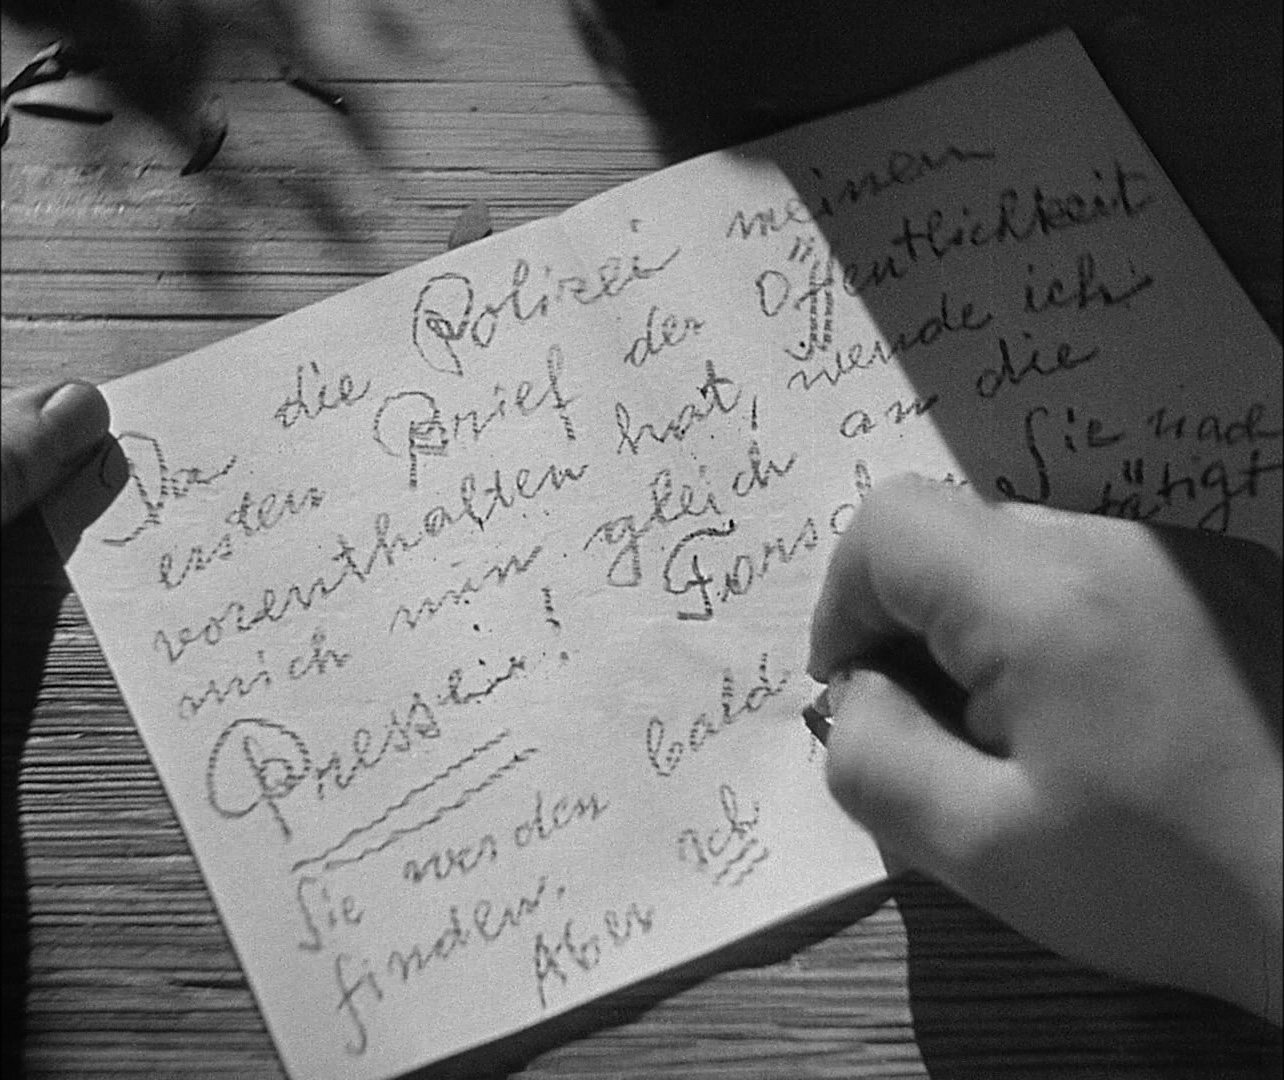 Da die Polizei meinen
ersten Brief der Öffentlichkeit
vorenthalten hat, wende ich
mich nun gleich an die
Presse! Sie nach
Sie werden bald tätigt
finden. Aber ich